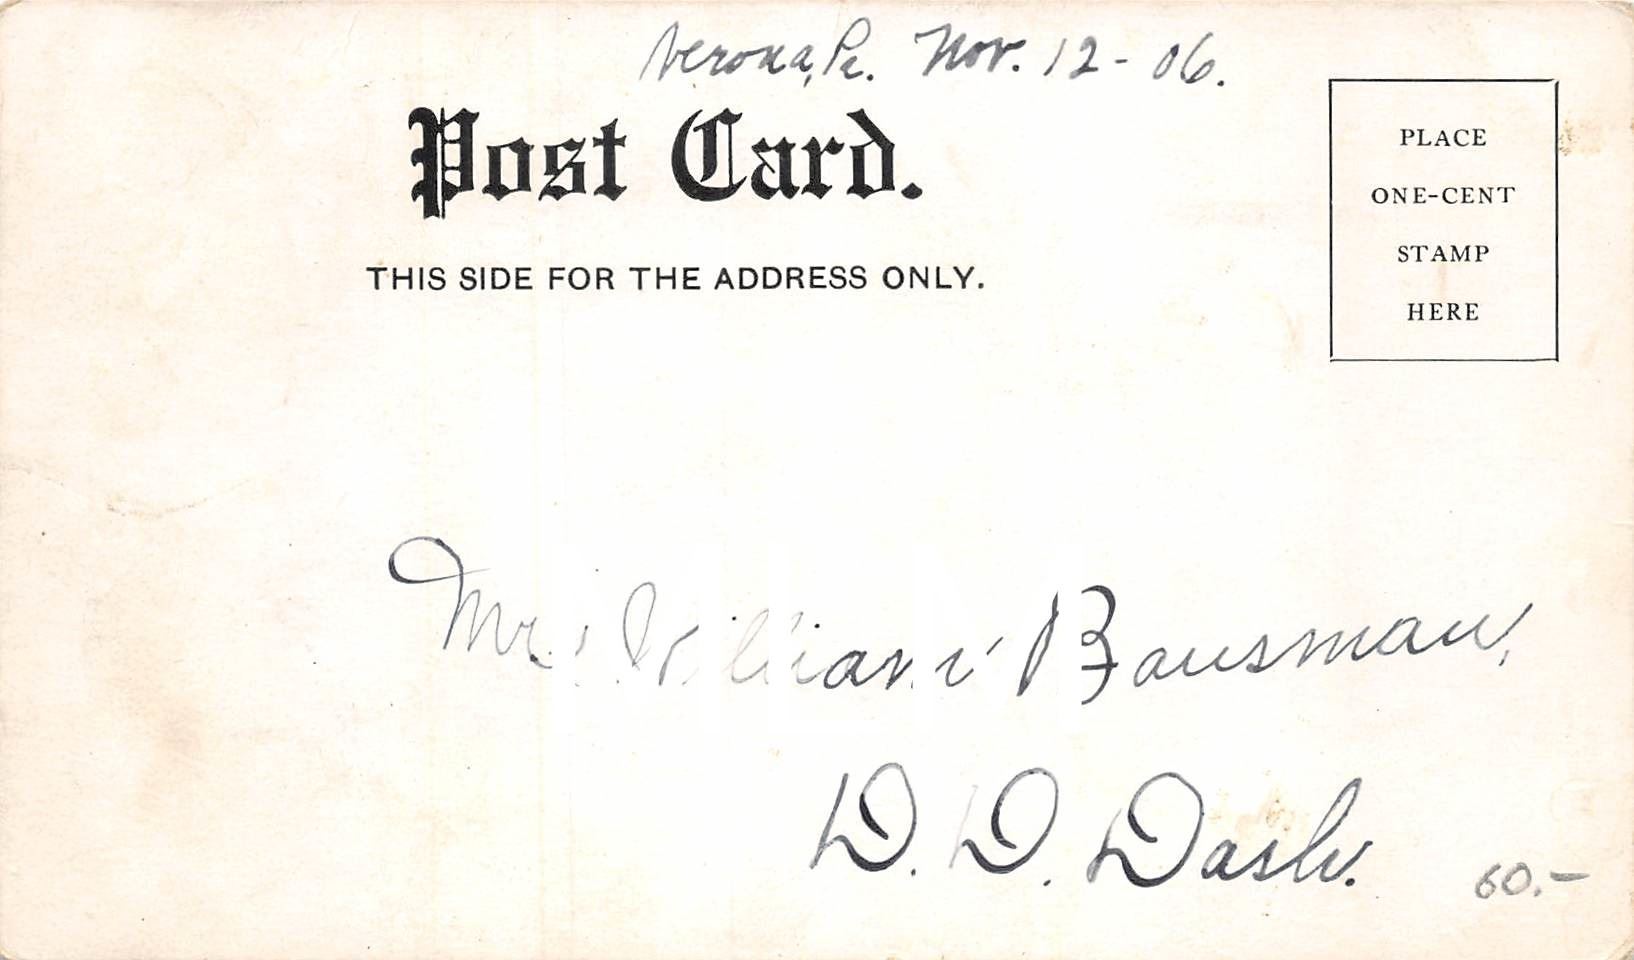 Verona, Pa. Nov. 12-06.
Post Card.
THIS SIDE FOR THE ADDRESS ONLY.
PLACE
ONE-CENT
STAMP
HERE
Mr. William Bausman,
D. D. Dash.
60.-